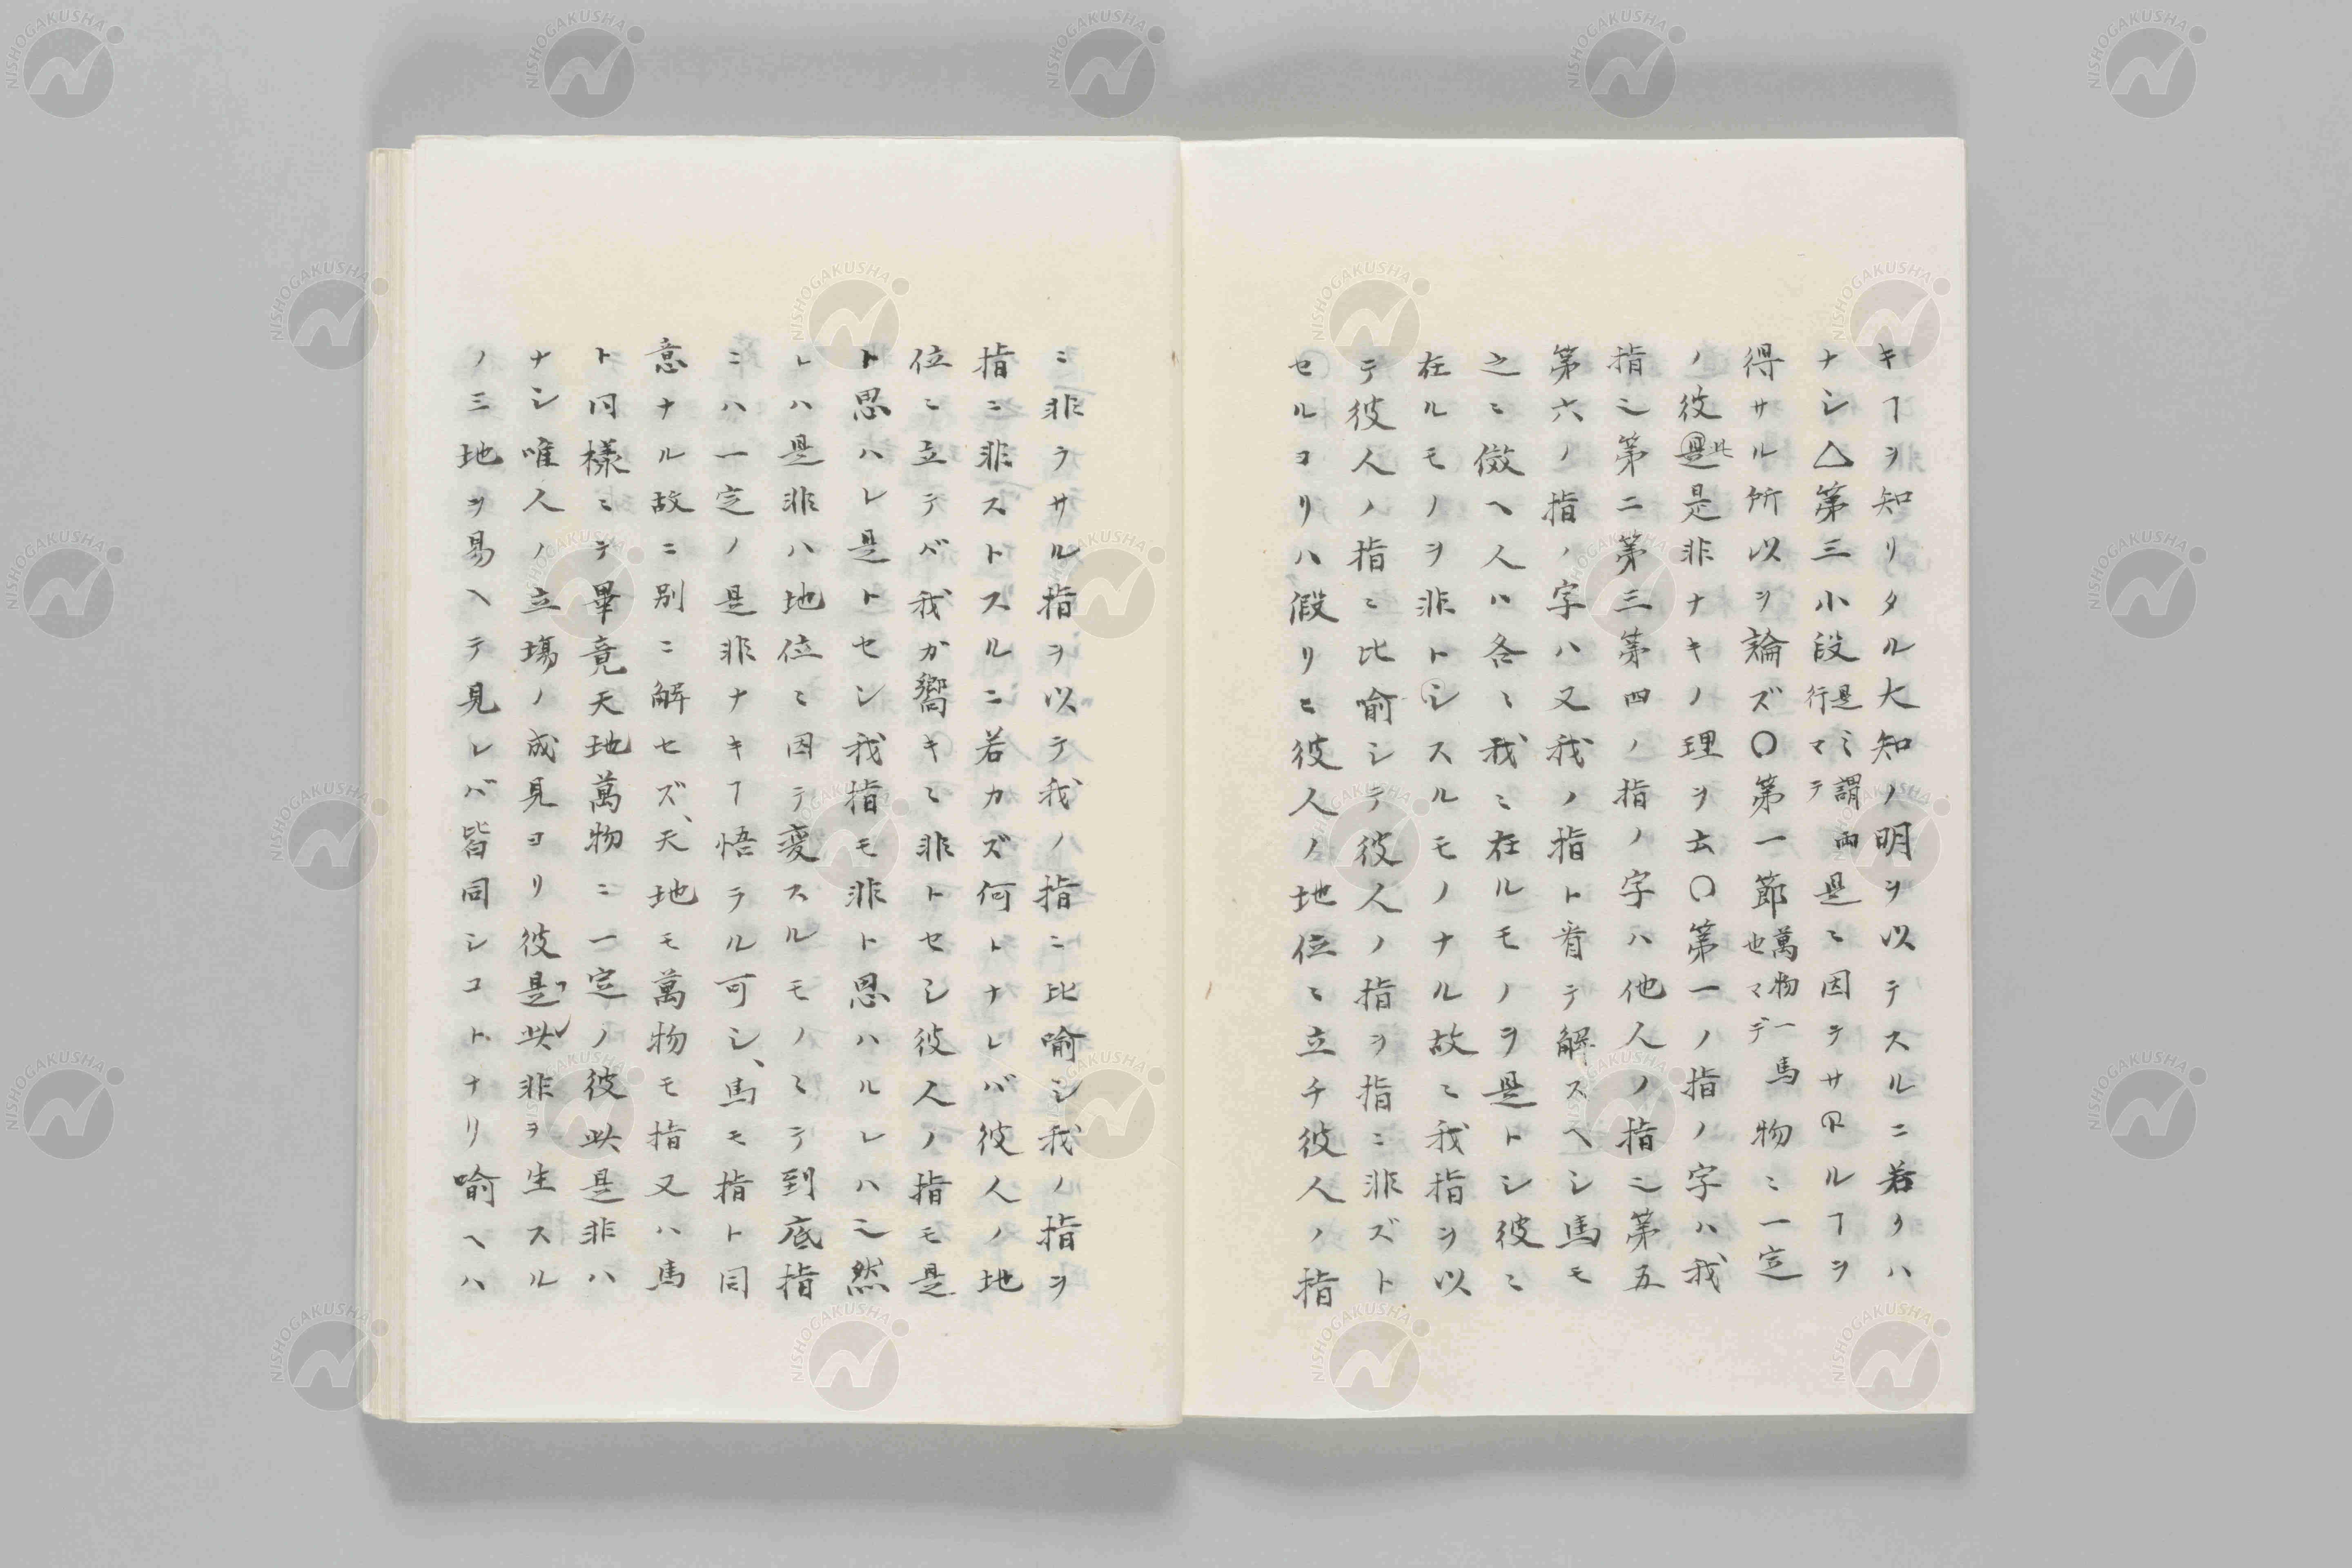 キヿヲ知リタル大知ノ明ヲ以テスルニ若クハ
ナシ△第三小段是ミ謂両行マテ是ミ因テサルヿヲ
得サル所以ヲ論ズ〇第一節萬物一馬也マデ物ミ一定
ノ彼是此是非ナキノ理ヲ云〇第一ノ指ノ字ハ我
指ニ第二第三第四ノ指ノ字ハ他人ノ指ニ第五
第六ノ指ノ字ハ又我ノ指ト肯テ解スヘシ馬モ
之ミ倣ヘ人ハ各ミ我ミ在ルモノヲ是トシ彼ミ
在ルモノヲ非トシスルモノナル故ミ我指ヲ以
テ彼人ノ指ミ比喻シテ彼人ノ指ヲ指ニ非ズト
セルヨリハ假リミ彼人ノ地位ミ立チ彼人ノ指
ニ非ラサル指ヲ以テ我ノ指ニ比喻シ我ノ指ヲ
指ニ非ストスルニ若カズ何トナレバ彼人ノ地
位ミ立テバ我カ嚮キミ非トセシ彼人ノ指モ是
ト思ハレ是トセシ我指モ非ト思ハルレハ之然
レハ是非ハ地位ミ因テ変スルモノミテ到底指
ニハ一定ノ是非ナキヿ悟ラル可シ、馬モ指ト同
意ナル故ニ別ニ解セズ、天地モ萬物モ指又ハ馬
ト同様ミテ畢竟天地萬物ニ一定ノ彼此是非ハ
ナシ唯人ノ立塲ノ成見ヨリ彼是此非ヲ生スル
ノミ地ヲ易ヘテ見レバ皆同シコトナリ喻ヘハ
NISHOGAKUSHA